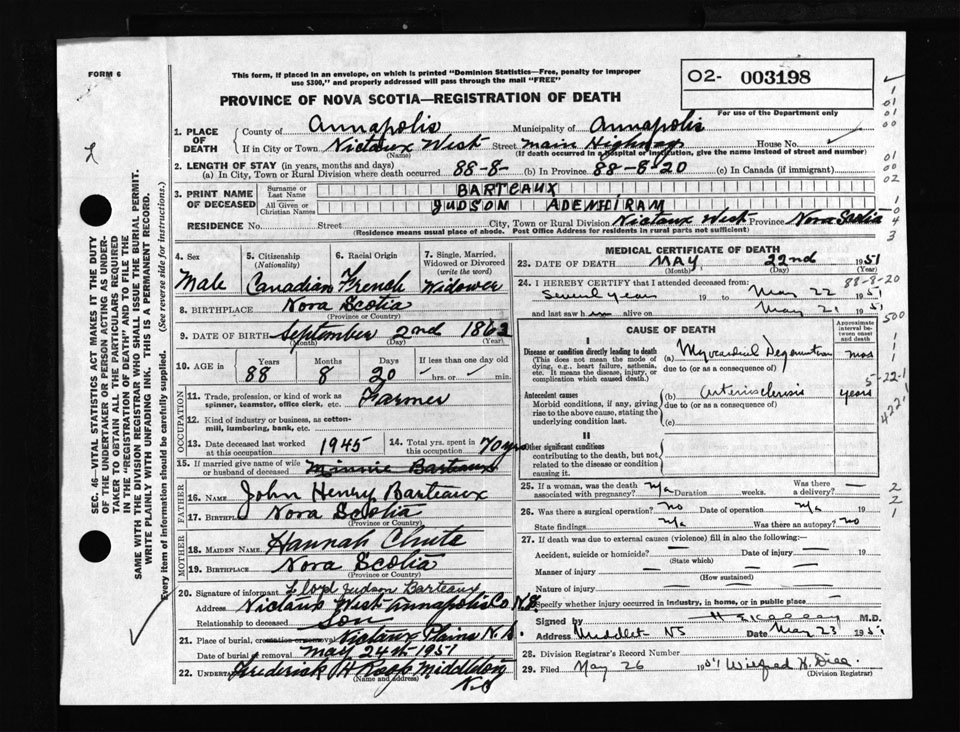 FORM 6
This form, if placed in an envelope, on which is printed "Dominion Statistics—Free, penalty for improper
use $300," and properly addressed will pass through the mail "FREE"
02- 003198
PROVINCE OF NOVA SCOTIA—REGISTRATION OF DEATH
For use of the Department only
1. PLACE OF DEATH
County of Annapolis Municipality of Annapolis
If in City or Town Nictaux West Street Main Highway House No.
(Name) (If death occurred in a hospital or institution, give the name instead of street and number)
2. LENGTH OF STAY (in years, months and days)
(a) In City, Town or Rural Division where death occurred 88-8- (b) In Province 88-8-20 (c) In Canada (if immigrant)
3. PRINT NAME OF DECEASED
Surname or Last Name BARTEAUX
All Given or Christian Names JUDSON ADENHIRAM
RESIDENCE No. Street City, Town or Rural Division Nictaux West Province Nova Scotia
(Residence means usual place of abode. Post Office Address for residents in rural parts not sufficient)
4. Sex Male
5. Citizenship (Nationality) Canadian
6. Racial Origin French
7. Single, Married, Widowed or Divorced (write the word) Widower
8. BIRTHPLACE Nova Scotia
(Province or Country)
9. DATE OF BIRTH September 2nd 1862
(Month) (Day) (Year)
10. AGE in Years 88 Months 8 Days 20 If less than one day old hrs. or min.
OCCUPATION
11. Trade, profession, or kind of work as spinner, teamster, office clerk, etc. Farmer
12. Kind of industry or business, as cotton-mill, lumbering, bank, etc.
13. Date deceased last worked at this occupation 1945
14. Total yrs. spent in this occupation 70 yrs
15. If married give name of wife or husband of deceased Minnie Barteaux
FATHER
16. NAME John Henry Barteaux
17. BIRTHPLACE Nova Scotia
(Province or Country)
MOTHER
18. MAIDEN NAME Hannah Chute
19. BIRTHPLACE Nova Scotia
(Province or Country)
20. Signature of informant Floyd Judson Barteaux
Address Nictaux West Annapolis Co N.S.
Relationship to deceased Son
21. Place of burial, cremation or removal Nictaux Plains N.S.
Date of burial or removal May 24th 1951
22. UNDERTAKER Frederick H Roop Middleton N.S
(Name and address)
MEDICAL CERTIFICATE OF DEATH
23. DATE OF DEATH MAY 22nd 1951
(Month) (Day) (Year)
88-8-20
24. I HEREBY CERTIFY that I attended deceased from:
Several years 19 to May 22 1951
and last saw him alive on May 21 1951
CAUSE OF DEATH
Approximate interval between onset and death
I
Disease or condition directly leading to death
(This does not mean the mode of dying, e.g., heart failure, asthenia, etc. It means the disease, injury, or complication which caused death.)
(a) Myocardial Degeneration mos
due to (or as a consequence of)
Antecedent causes
Morbid conditions, if any, giving rise to the above cause, stating the underlying condition last.
(b) Arteriosclerosis years
due to (or as a consequence of)
(c)
II
Other significant conditions
contributing to the death, but not related to the disease or condition causing it.
25. If a woman, was the death associated with pregnancy? n/a Duration weeks. Was there a delivery? —
26. Was there a surgical operation? no Date of operation n/a 19
State findings n/a Was there an autopsy? no
27. If death was due to external causes (violence) fill in also the following:
Accident, suicide or homicide? — Date of injury — 19
(State which)
Manner of injury —
(How sustained)
Nature of injury —
Specify whether injury occurred in industry, in home, or in public place —
Signed by M.D.
Address Middleton NS Date May 23 1951
28. Division Registrar's Record Number
29. Filed May 26 1951
(Division Registrar)
SEC. 46—VITAL STATISTICS ACT MAKES IT THE DUTY
OF THE UNDERTAKER OR PERSON ACTING AS UNDER-
TAKER TO OBTAIN ALL THE PARTICULARS REQUIRED
IN THE "REGISTRATION OF DEATH" AND TO FILE THE
SAME WITH THE DIVISION REGISTRAR WHO SHALL ISSUE THE BURIAL PERMIT.
WRITE PLAINLY WITH UNFADING INK. THIS IS A PERMANENT RECORD.
Every item of information should be carefully supplied. (See reverse side for instructions.)